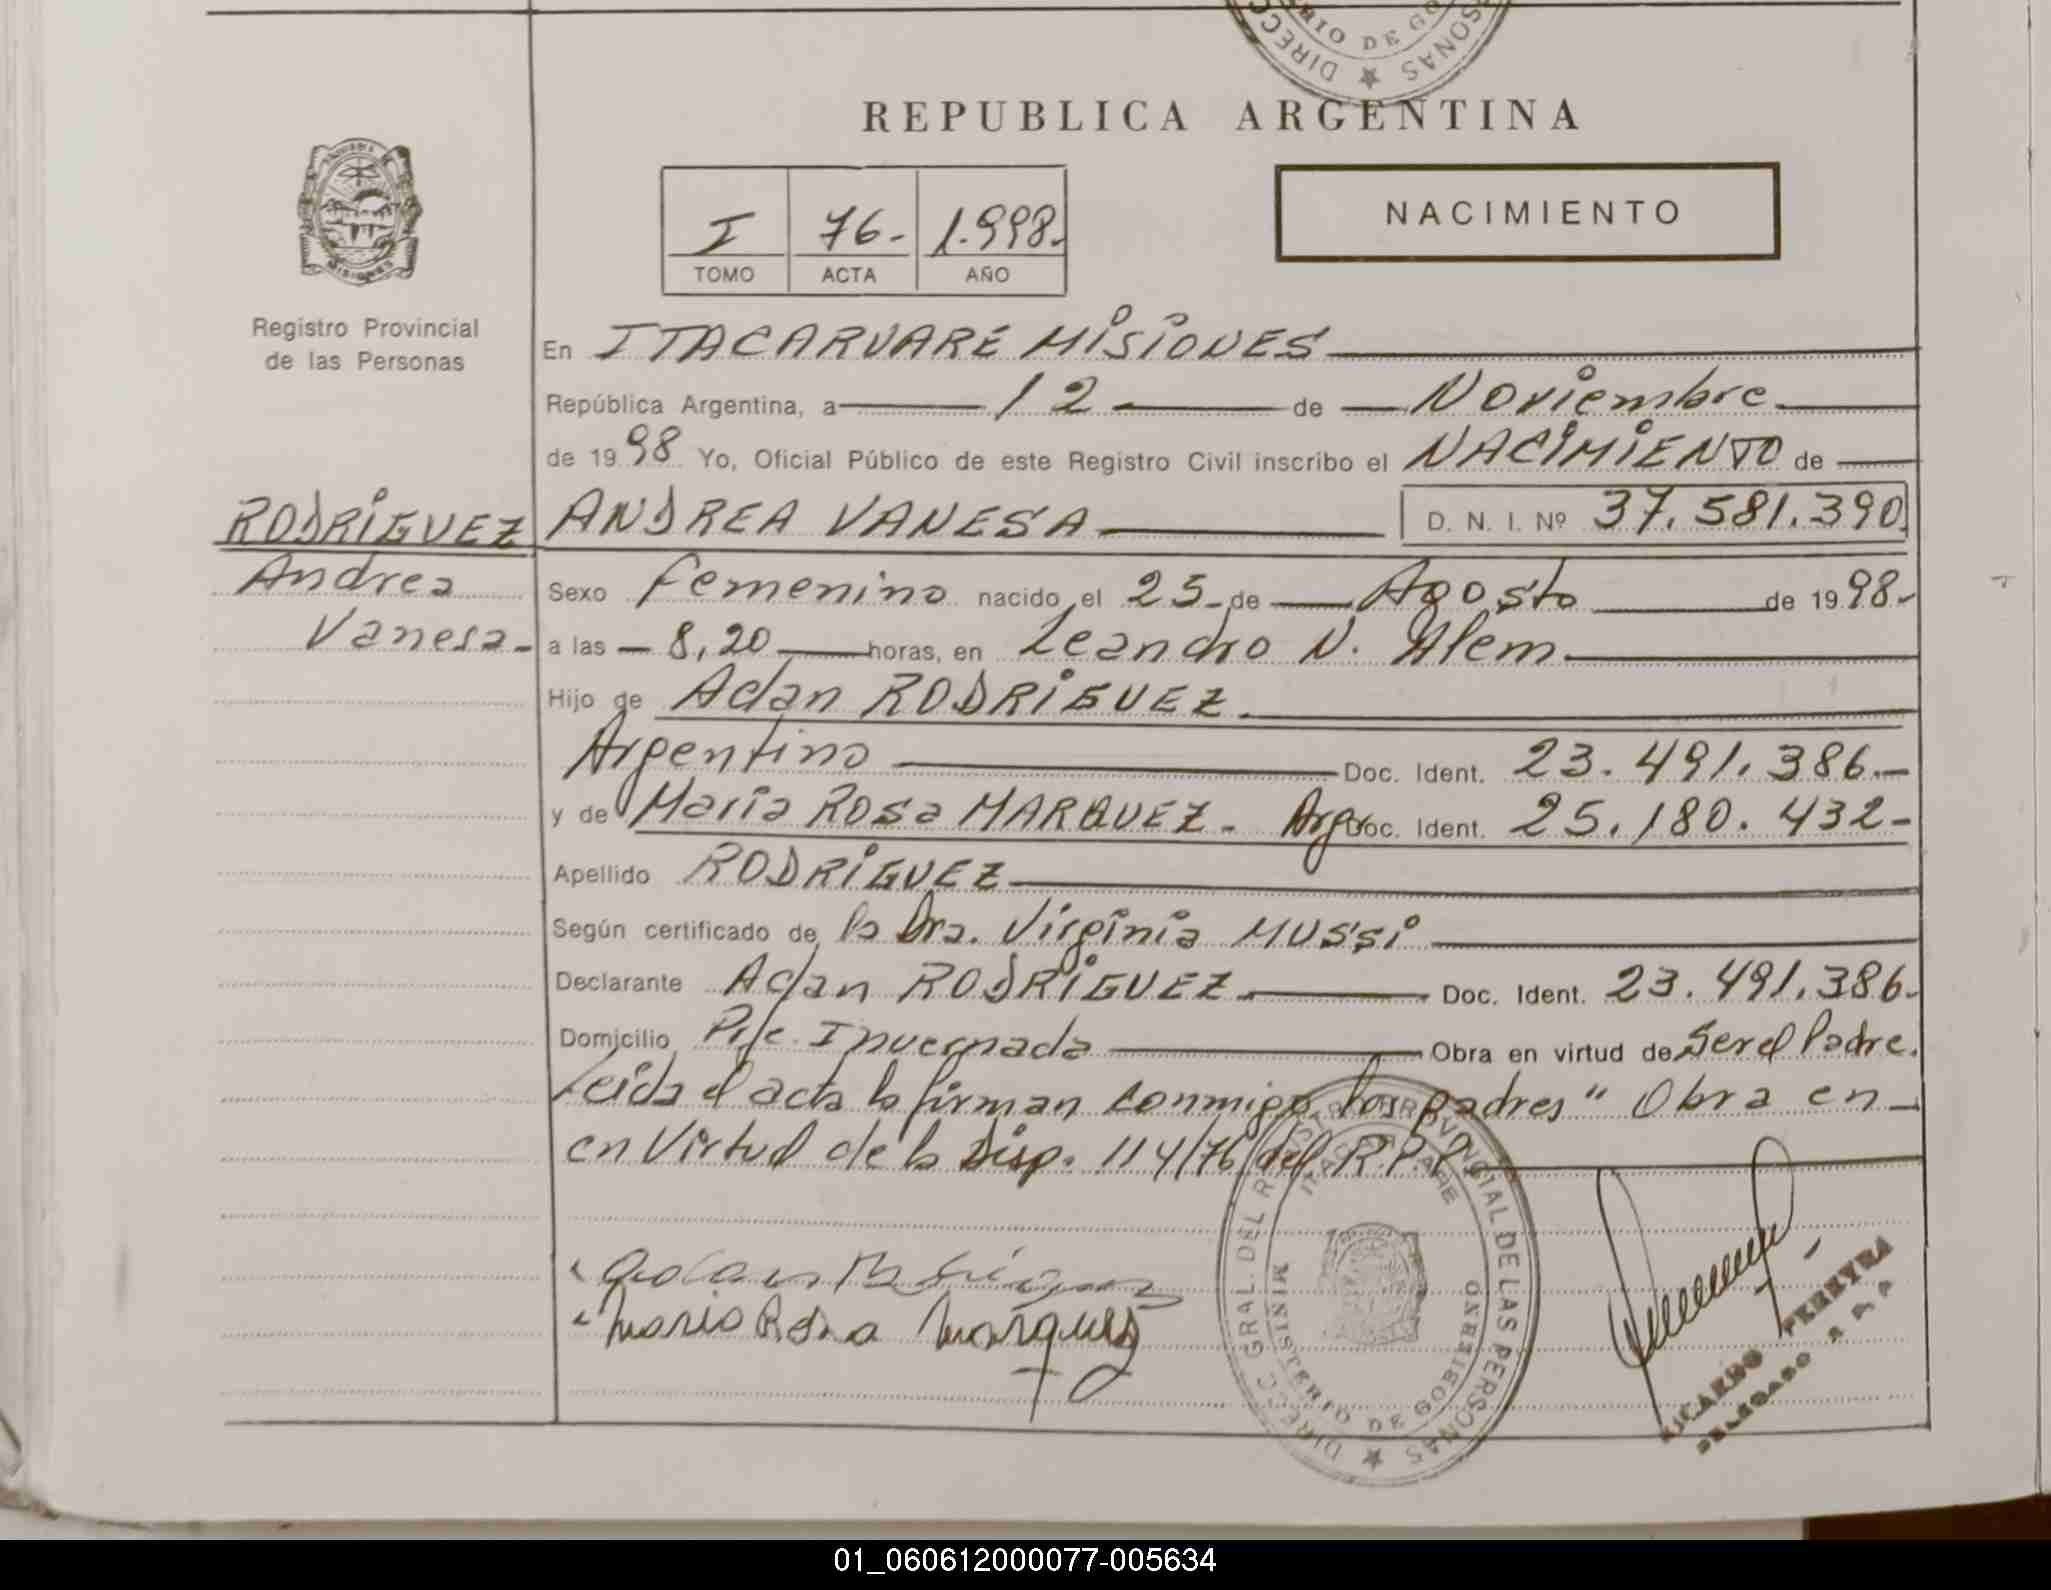 REPUBLICA ARGENTINA
I 76- 1.998-
TOMO ACTA AÑO
NACIMIENTO
MISIONES
Registro Provincial
de las Personas
En ITACARUARÉ MISIONES
República Argentina, a 12 de Noviembre
de 1998 Yo, Oficial Público de este Registro Civil inscribo el NACIMIENTO de
RODRIGUEZ ANDREA VANESA D. N. I. Nº 37.581.390
Andrea
Vanesa-
Sexo Femenino nacido el 25- de Agosto de 1998-
a las - 8,20 horas, en Leandro N. Alem.
Hijo de Adan RODRIGUEZ.
Argentino Doc. Ident. 23.491.386.-
y de María Rosa MARQUEZ- Arg. Doc. Ident. 25.180.432-
Apellido RODRIGUEZ
Según certificado de la Dra. Virginia MUSSI
Declarante Adan RODRIGUEZ Doc. Ident. 23.491.386-
Domicilio Pje. Invernada Obra en virtud de Ser el Padre.
Leida el acta la firman conmigo los padres" Obra en
en Virtud de la Disp. 114/76 del R.P.P.
Maria Rosa Marquez
DIRECC. GRAL. DEL REGISTRO PROVINCIAL DE LAS PERSONAS
ITACARUARE
MINISTERIO DE GOBIERNO
RICARDO PEREYRA
DELEGADO R. P. P.
01_060612000077-005634